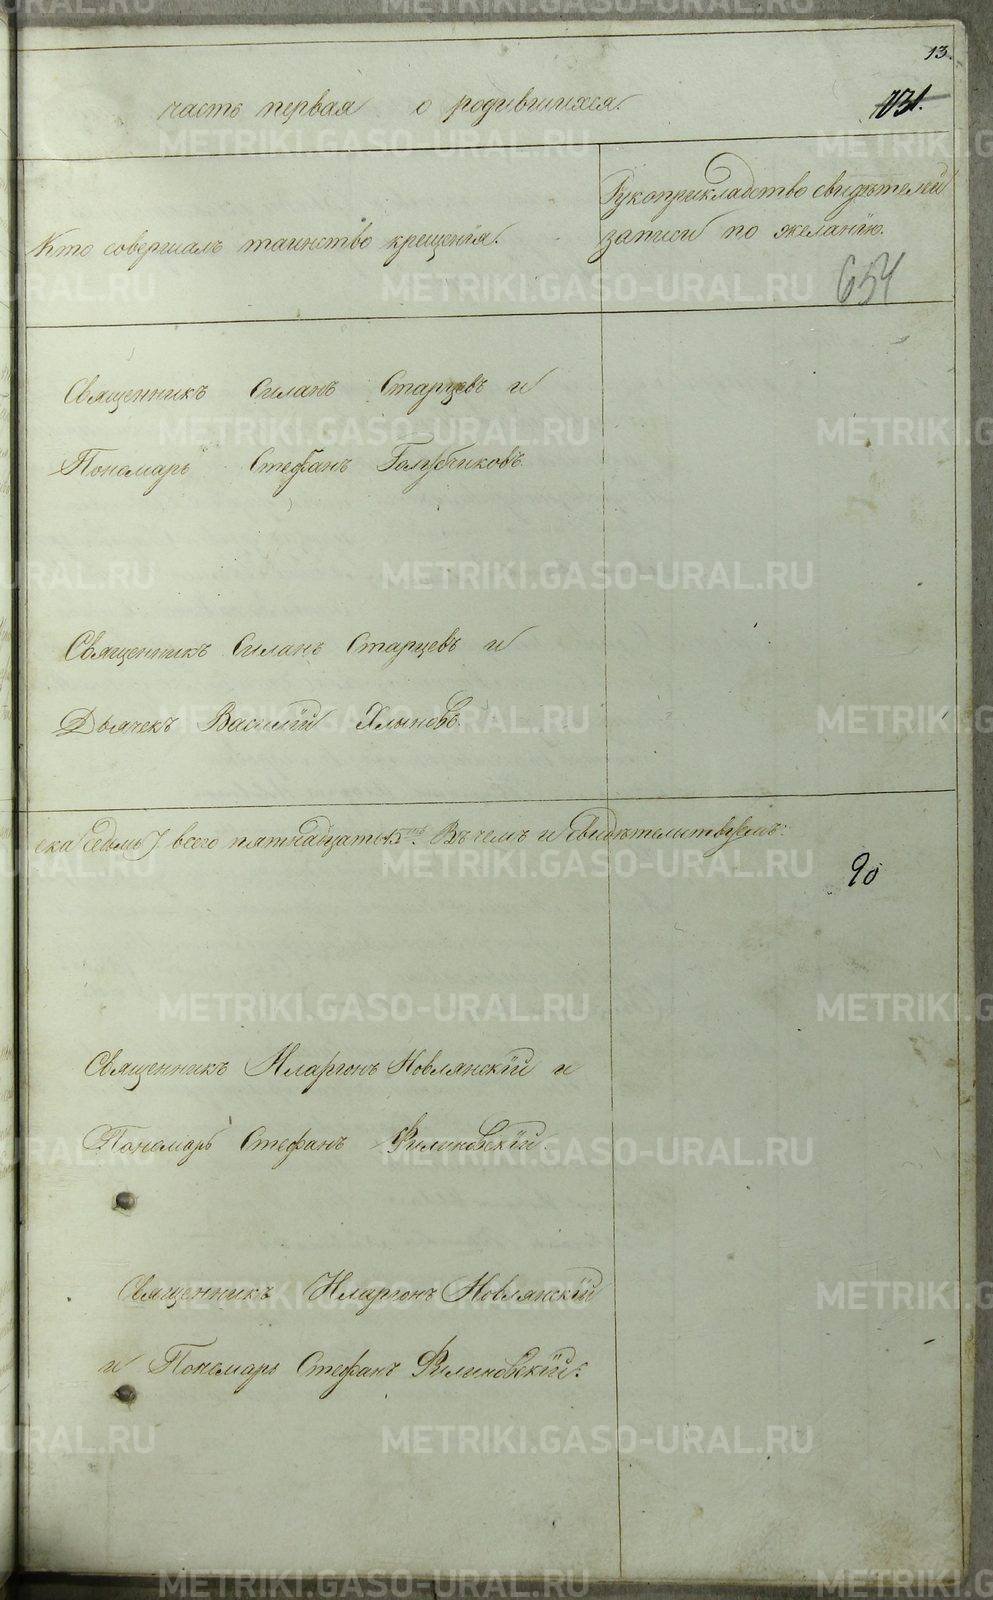 13.
часть первая о родившихся.
131.
Кто совершалъ таинство крещенія.
Рукоприкладство свидѣтелей
записи по желанію.
654
Священникъ Силанъ Старцевъ и
Пономарь Стефанъ Голубчиковъ
Священникъ Силанъ Старцевъ и
Дьячекъ Василій Хлыновъ
ека (седмь) всего пятнадцать 15ть. Въ чемъ и свидѣтельствуемъ:
90
Священникъ Иларіонъ Новлянскій и
Пономарь Стефанъ Филиновскій
Священникъ Иларіонъ Новлянскій
и Пономарь Стефанъ Филиновскій.
METRIKI.GASO-URAL.RU